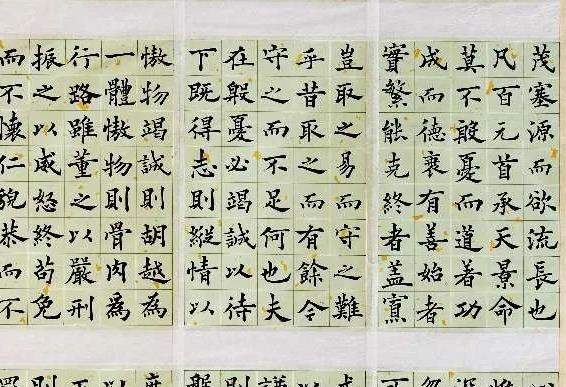 茂塞源而欲流長也
凡百元首承天景命
莫不殷憂而道著功
成而德衰有善始者
實繁能克終者蓋寡
豈取之易而守之難
乎昔取之而有餘令
守之而不足何也夫
在殷憂必竭誠以待
下既得志則縱情以
傲物竭誠則胡越為
一體傲物則骨肉為
行路雖董之以嚴刑
振之以威怒終苟免
而不懷仁貌恭而不